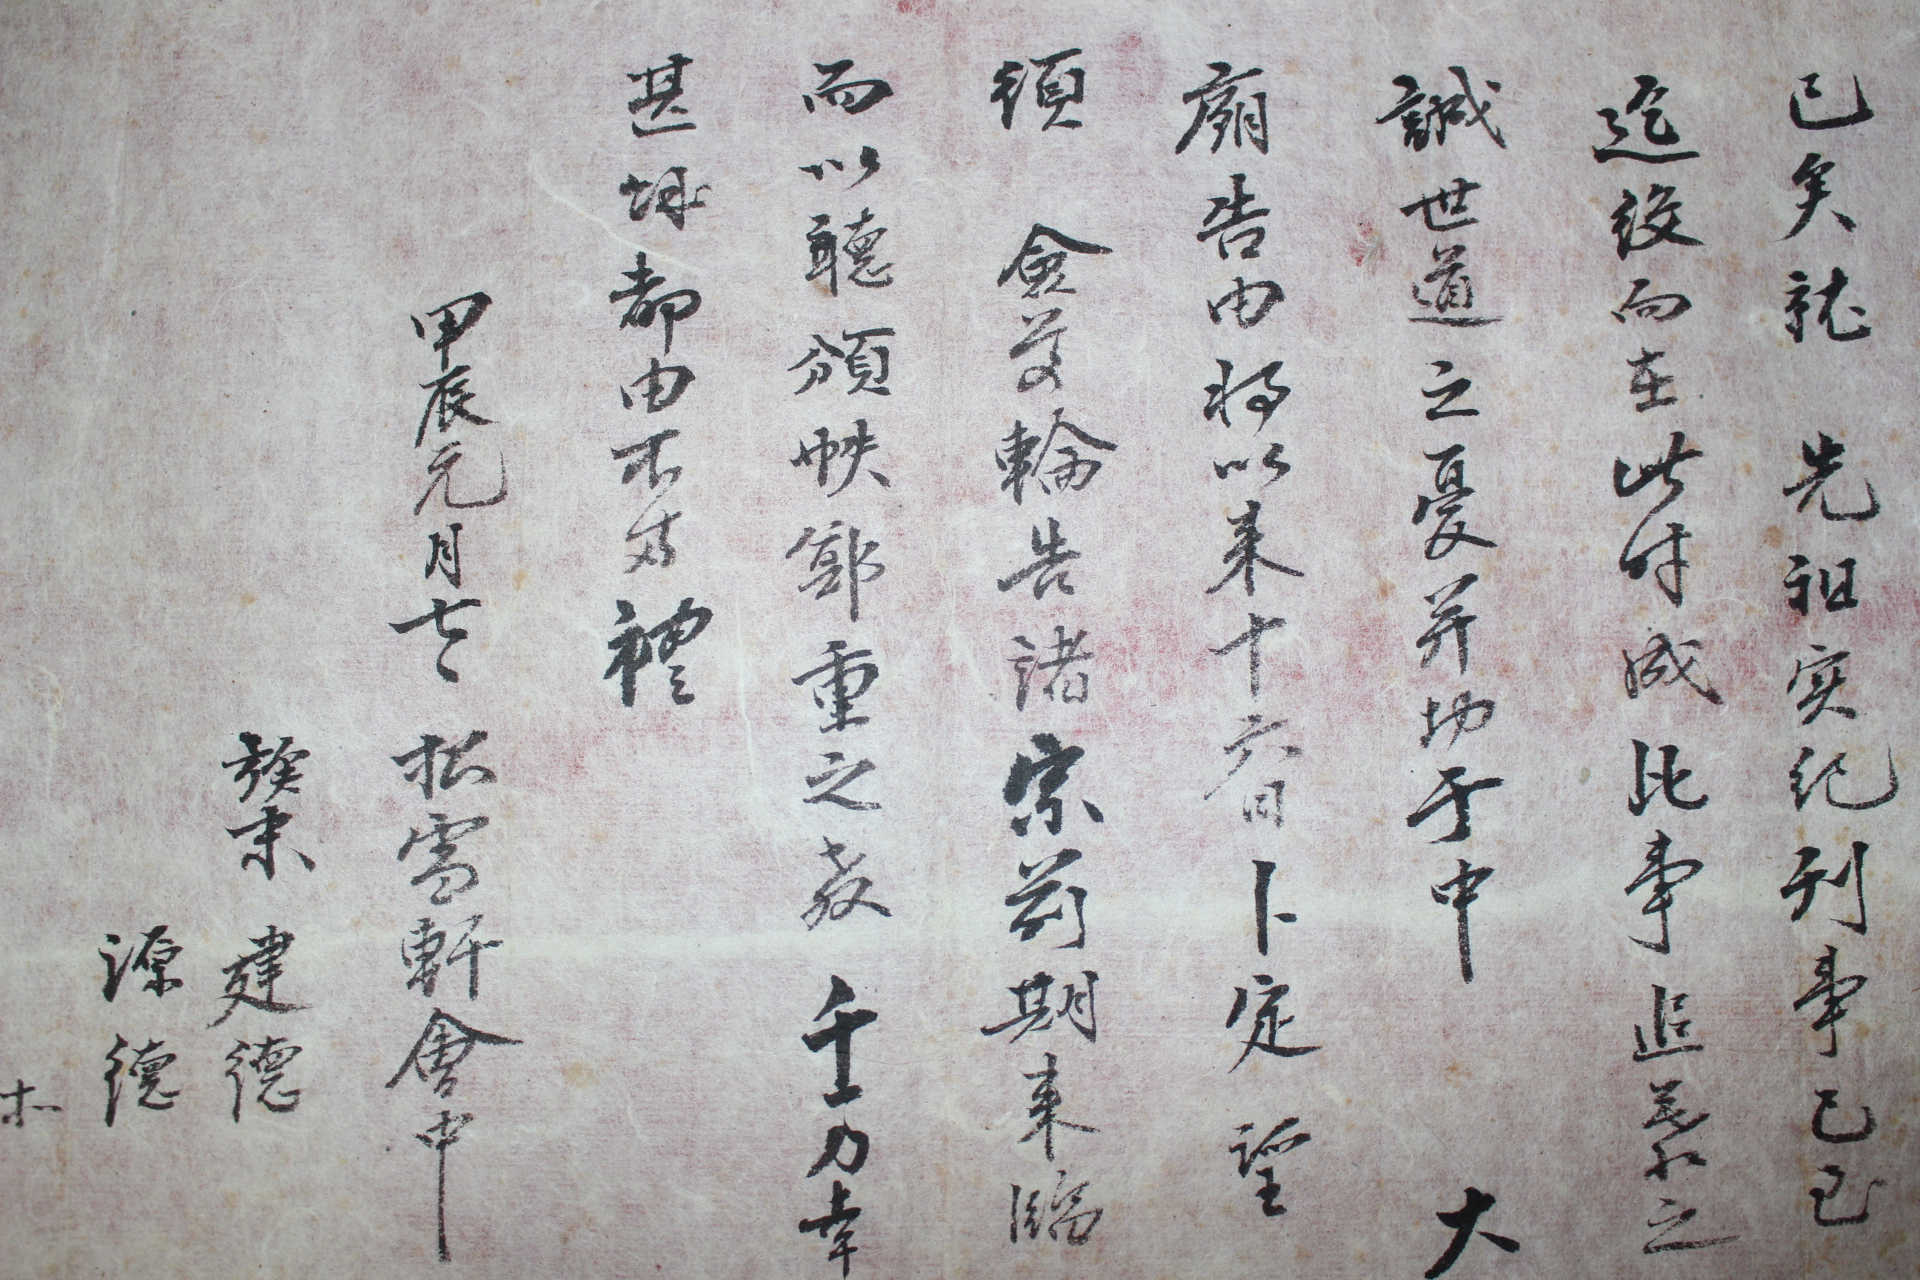 已矣就 先祖实纪刊事已至
迄後而在此时成此事追慕之
誠世道之憂并切于中 大
廟告由将以来十六日卜定 望
須 僉員輪告諸宗前期来臨
而以聽頒帙鄭重之教 千万幸
甚城都由不备禮
甲辰元月七日 松雪軒會中
族末 建德
源德